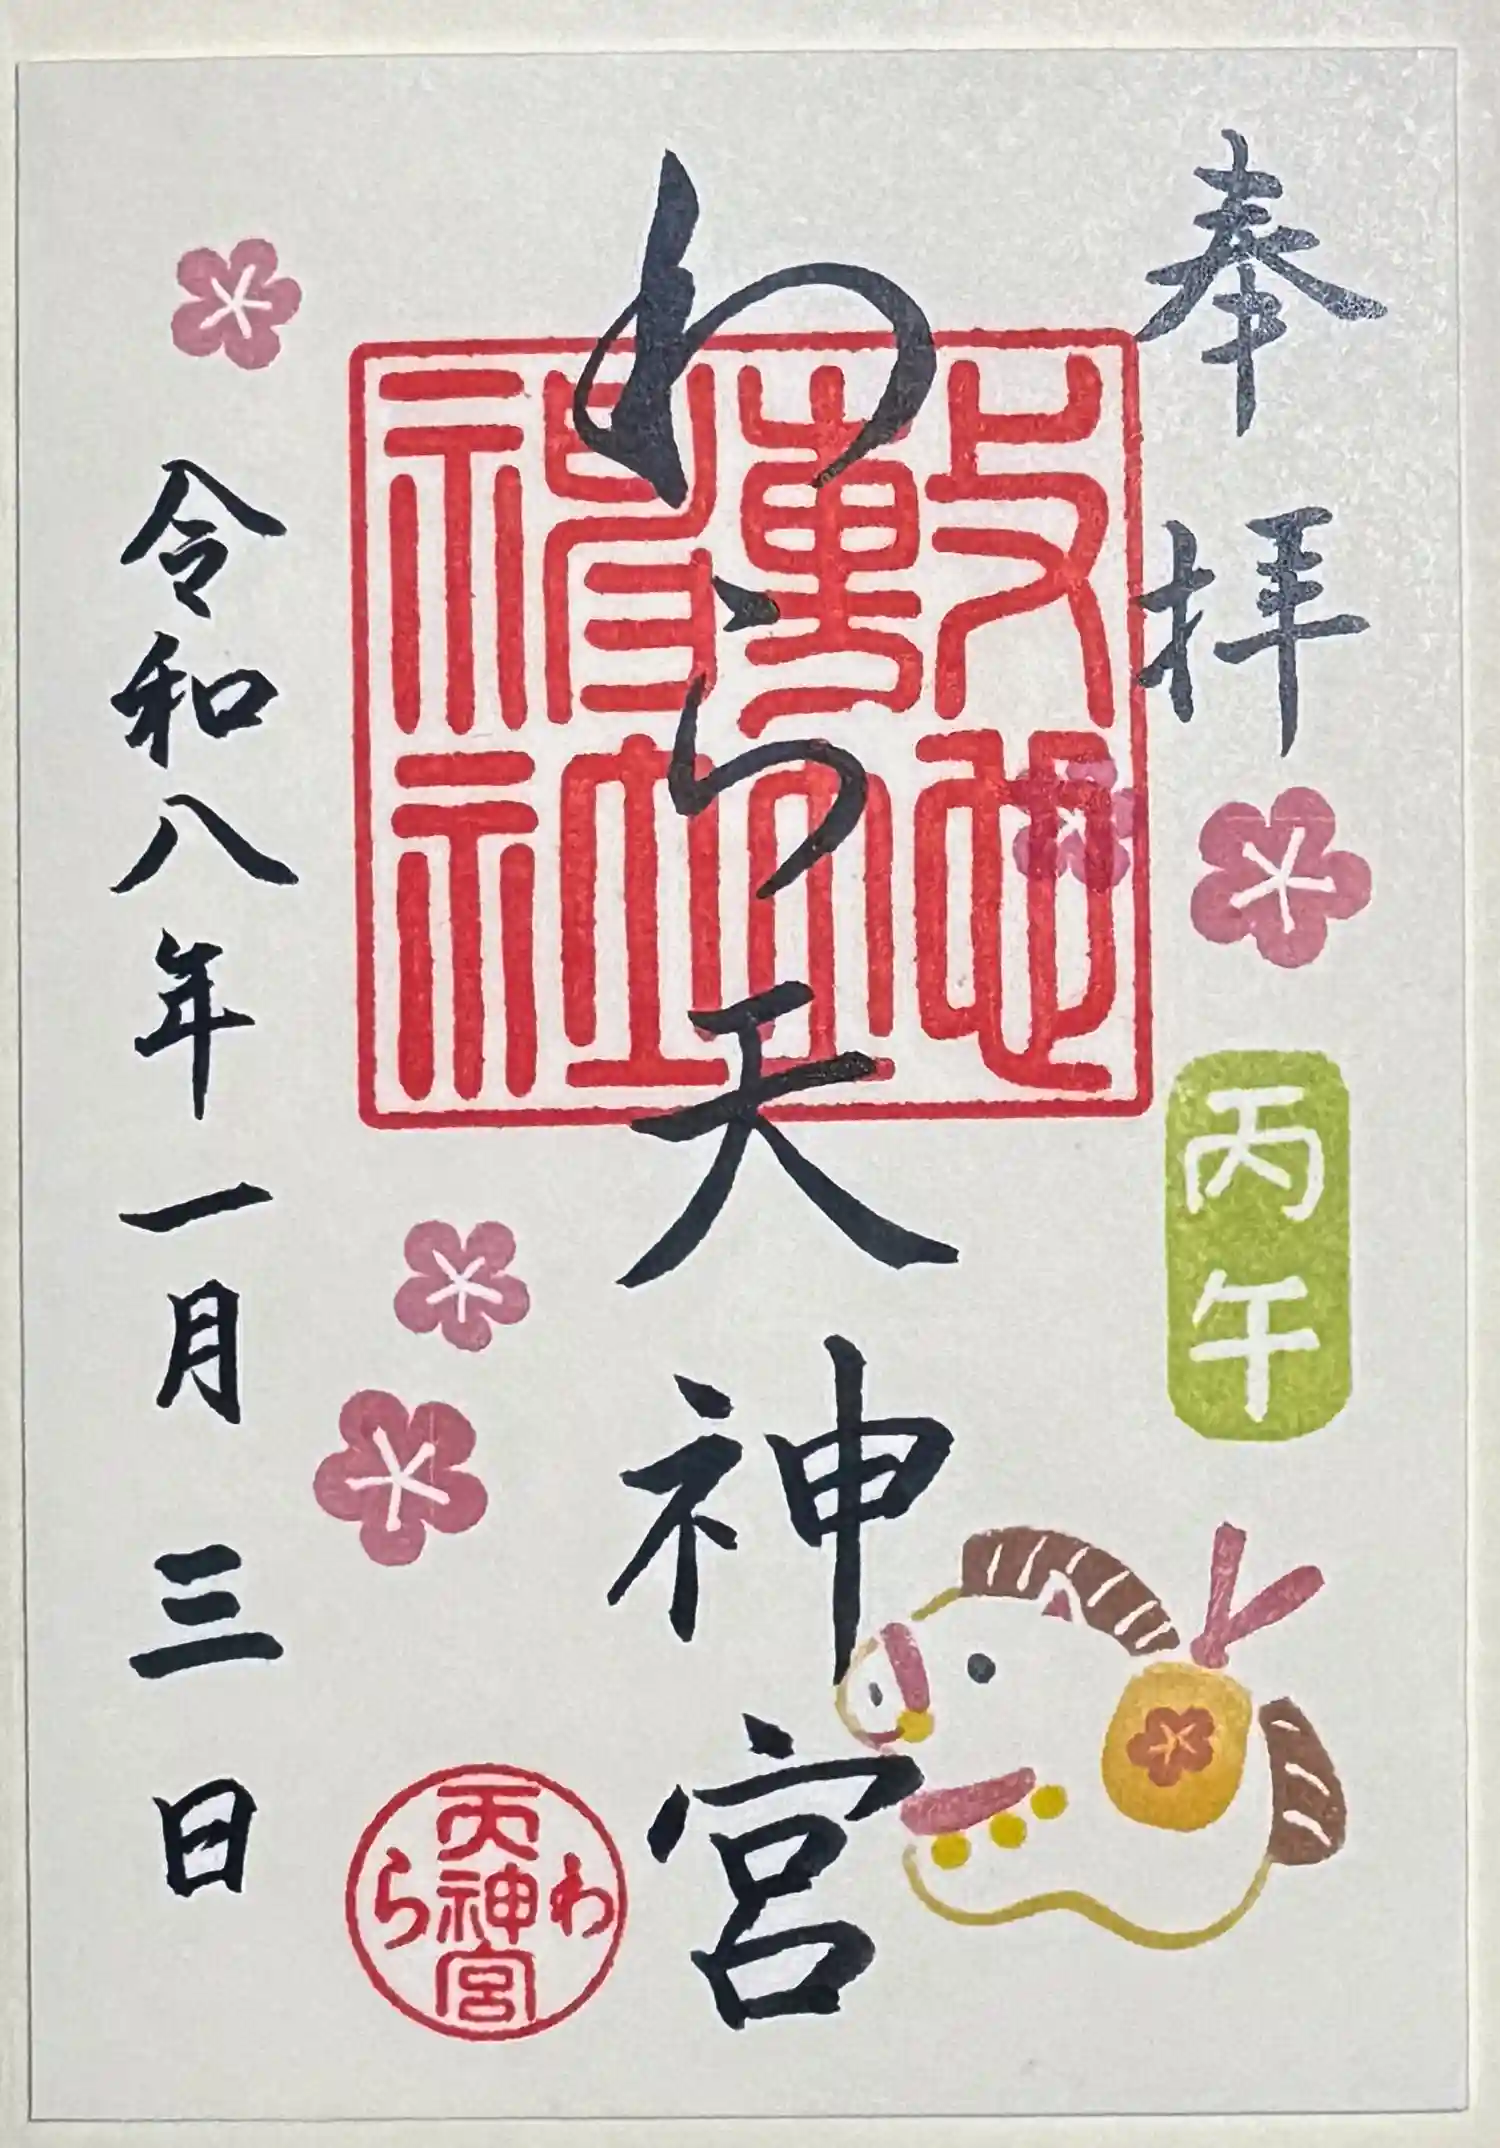 奉拝
丙午
わら天神宮
令和八年一月三日
わら
天神宮